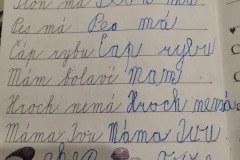 Slon má
Pes má Pes má
Čáp rybu Čap rybu
Mám bolavé Mam
Hroch nemá Hroch nemá
Máma Ivu Máma Ivu